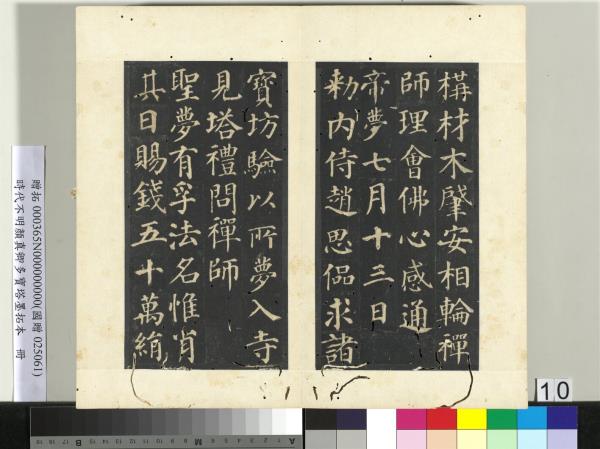 構材木肇安相輪禪
師理會佛心感通
帝夢七月十三日
勑內侍趙思侃求諸
寶坊驗以所夢入寺
見塔禮問禪師
聖夢有孚法名惟肖
其日賜錢五十萬絹
贈拓 000365N000000000(國贈 025061)
時代不明顏真卿多寶塔墨拓本 冊
10